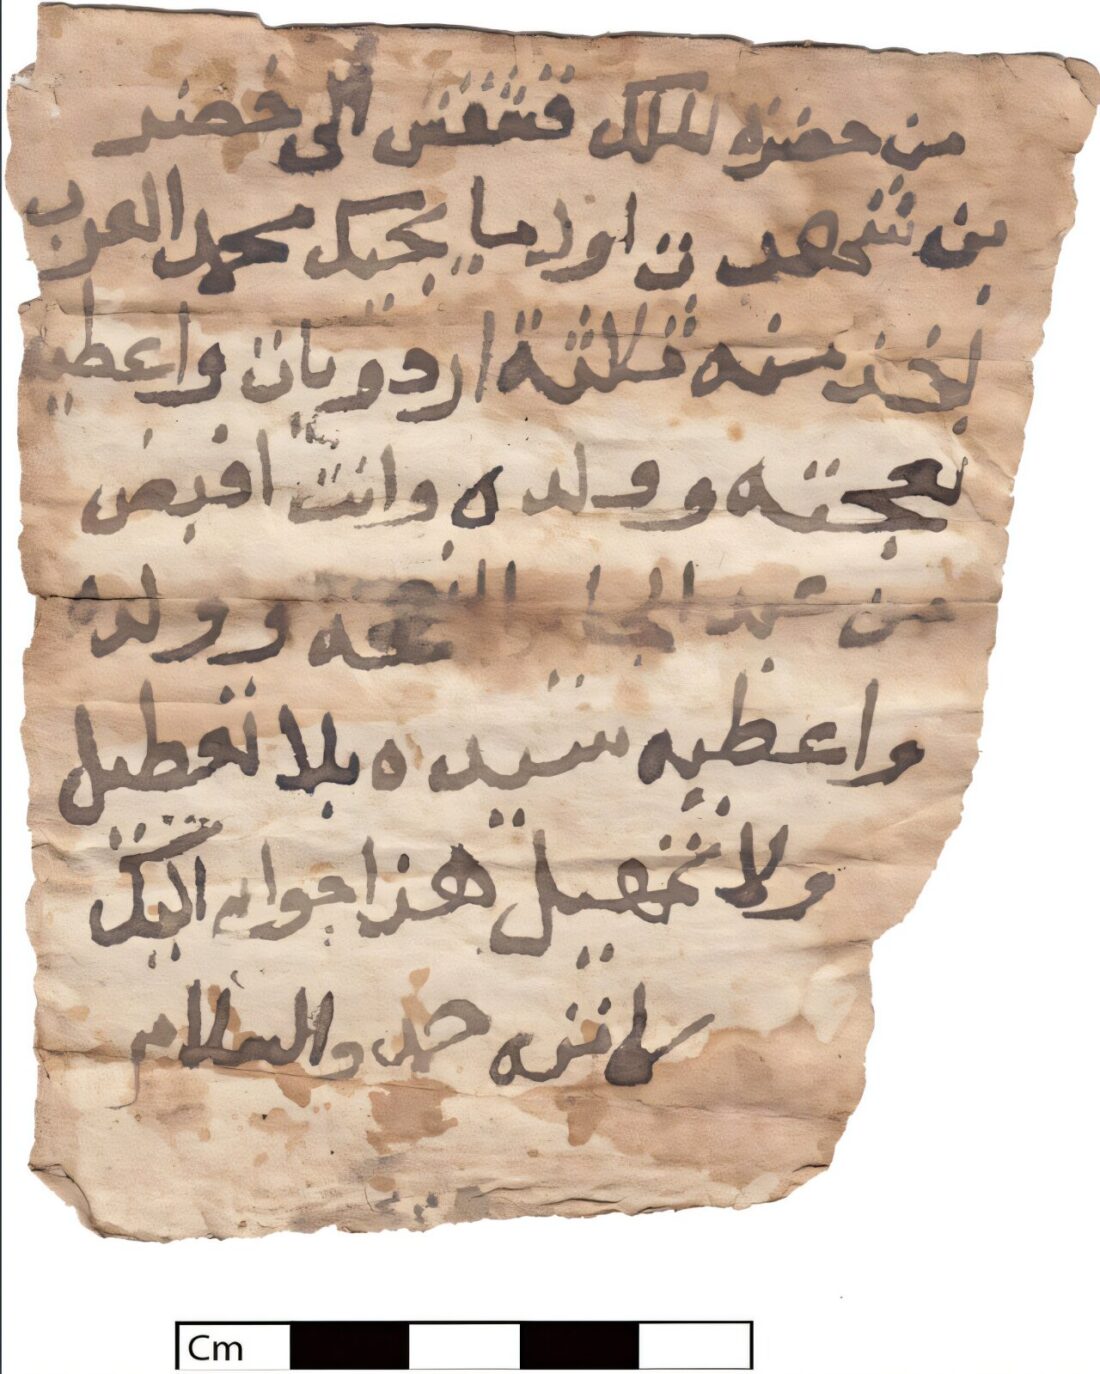 من حضره الملك قشقش الى خضر
بن شهدت اول ما يجيك محمد العرب
ياخذ منه ثلاثة اردويات واعطيه
نعجته وولده وانت اقبض
من عبد النعجه وولده
واعطيه سيده بلا تعطيل
ولا تمهيل هذا جوابي اليك
كاتبه حمد والسلام
Cm